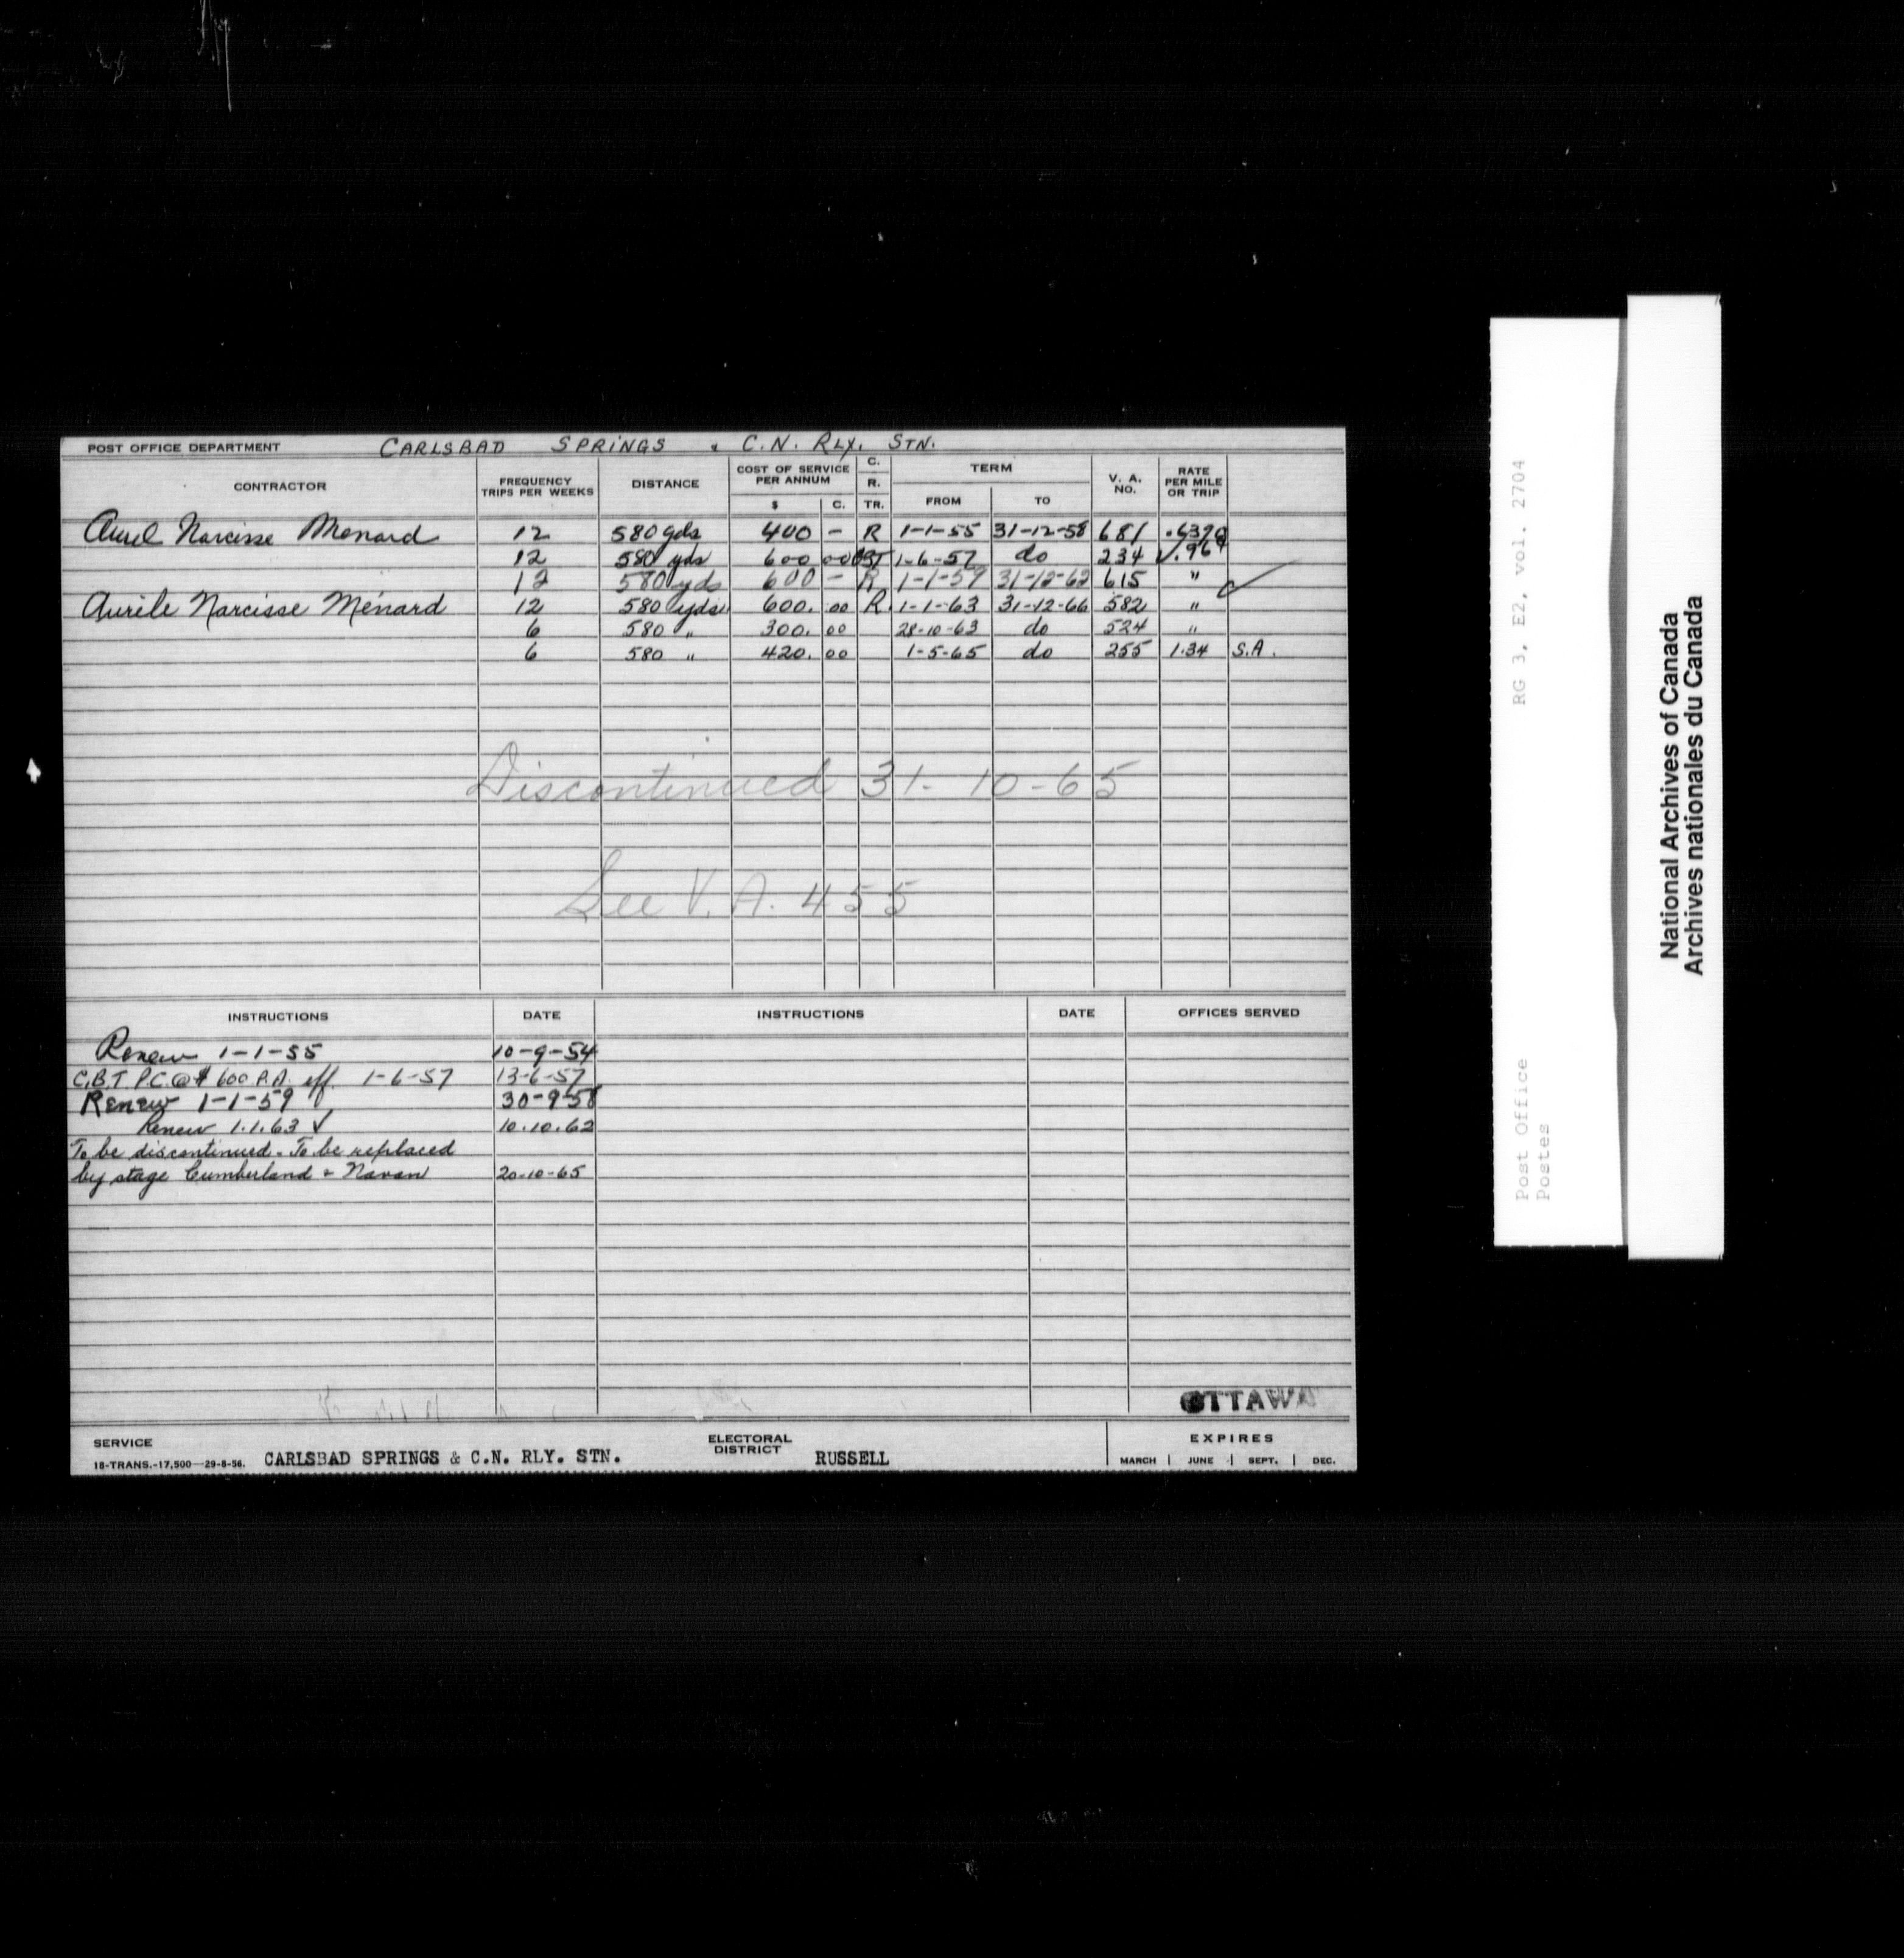 POST OFFICE DEPARTMENT CARLSBAD SPRINGS & C.N. RLY. STN.
CONTRACTOR FREQUENCY TRIPS PER WEEKS DISTANCE COST OF SERVICE PER ANNUM $ C. C. R. TR. TERM FROM TO V. A. NO. RATE PER MILE OR TRIP
Aurel Narcisse Menard 12 580 yds 400 — R 1-1-55 31-12-58 681
12 580 yds 600 00 1-6-57 do 234 .96
12 580 yds 600 — R 1-1-59 31-12-62 615 "
Aurèle Narcisse Ménard 12 580 yds 600. 00 R. 1-1-63 31-12-66 582 "
6 580 " 300. 00 28-10-63 do 524 "
6 580 " 420. 00 1-5-65 do 255 1.34 S.A.
Discontinued 31-10-65
See V.A. 455
INSTRUCTIONS DATE INSTRUCTIONS DATE OFFICES SERVED
Renew 1-1-55 10-9-54
C.B.T. P.C. @ $600 P.A. eff. 1-6-57 13-6-57
Renew 1-1-59 30-9-58
Renew 1.1.63 ✓ 10.10.62
To be discontinued - To be replaced
by stage Cumberland & Navan 20-10-65
OTTAWA
SERVICE CARLSBAD SPRINGS & C.N. RLY. STN. ELECTORAL DISTRICT RUSSELL EXPIRES
18-TRANS.-17,500—29-8-56. MARCH | JUNE | SEPT. | DEC.
RG 3, E2, vol. 2704
Post Office
Postes
National Archives of Canada
Archives nationales du Canada